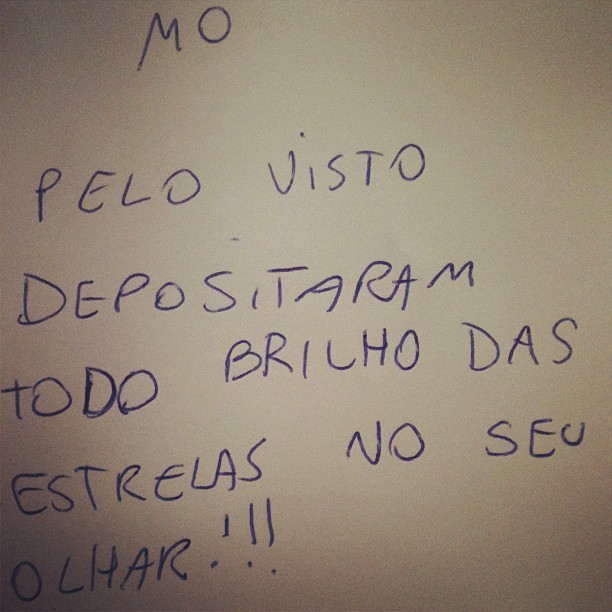 MO
PELO VISTO
DEPOSITARAM
TODO BRILHO DAS
ESTRELAS NO SEU
OLHAR!!!